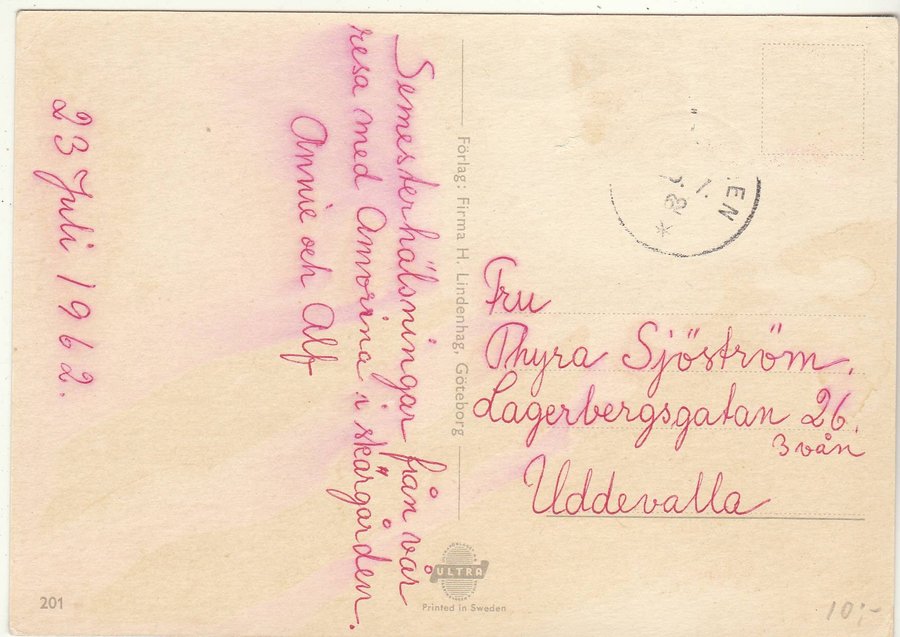 Semesterhälsningar från vår
resa med Amorina i skärgården.
Annie och Alf
23 Juli 1962.
Förlag: Firma H. Lindenhag, Göteborg
Fru
Thyra Sjöström.
Lagerbergsgatan 26.
3 vån
Uddevalla
ULTRA
Printed in Sweden
201
10:-